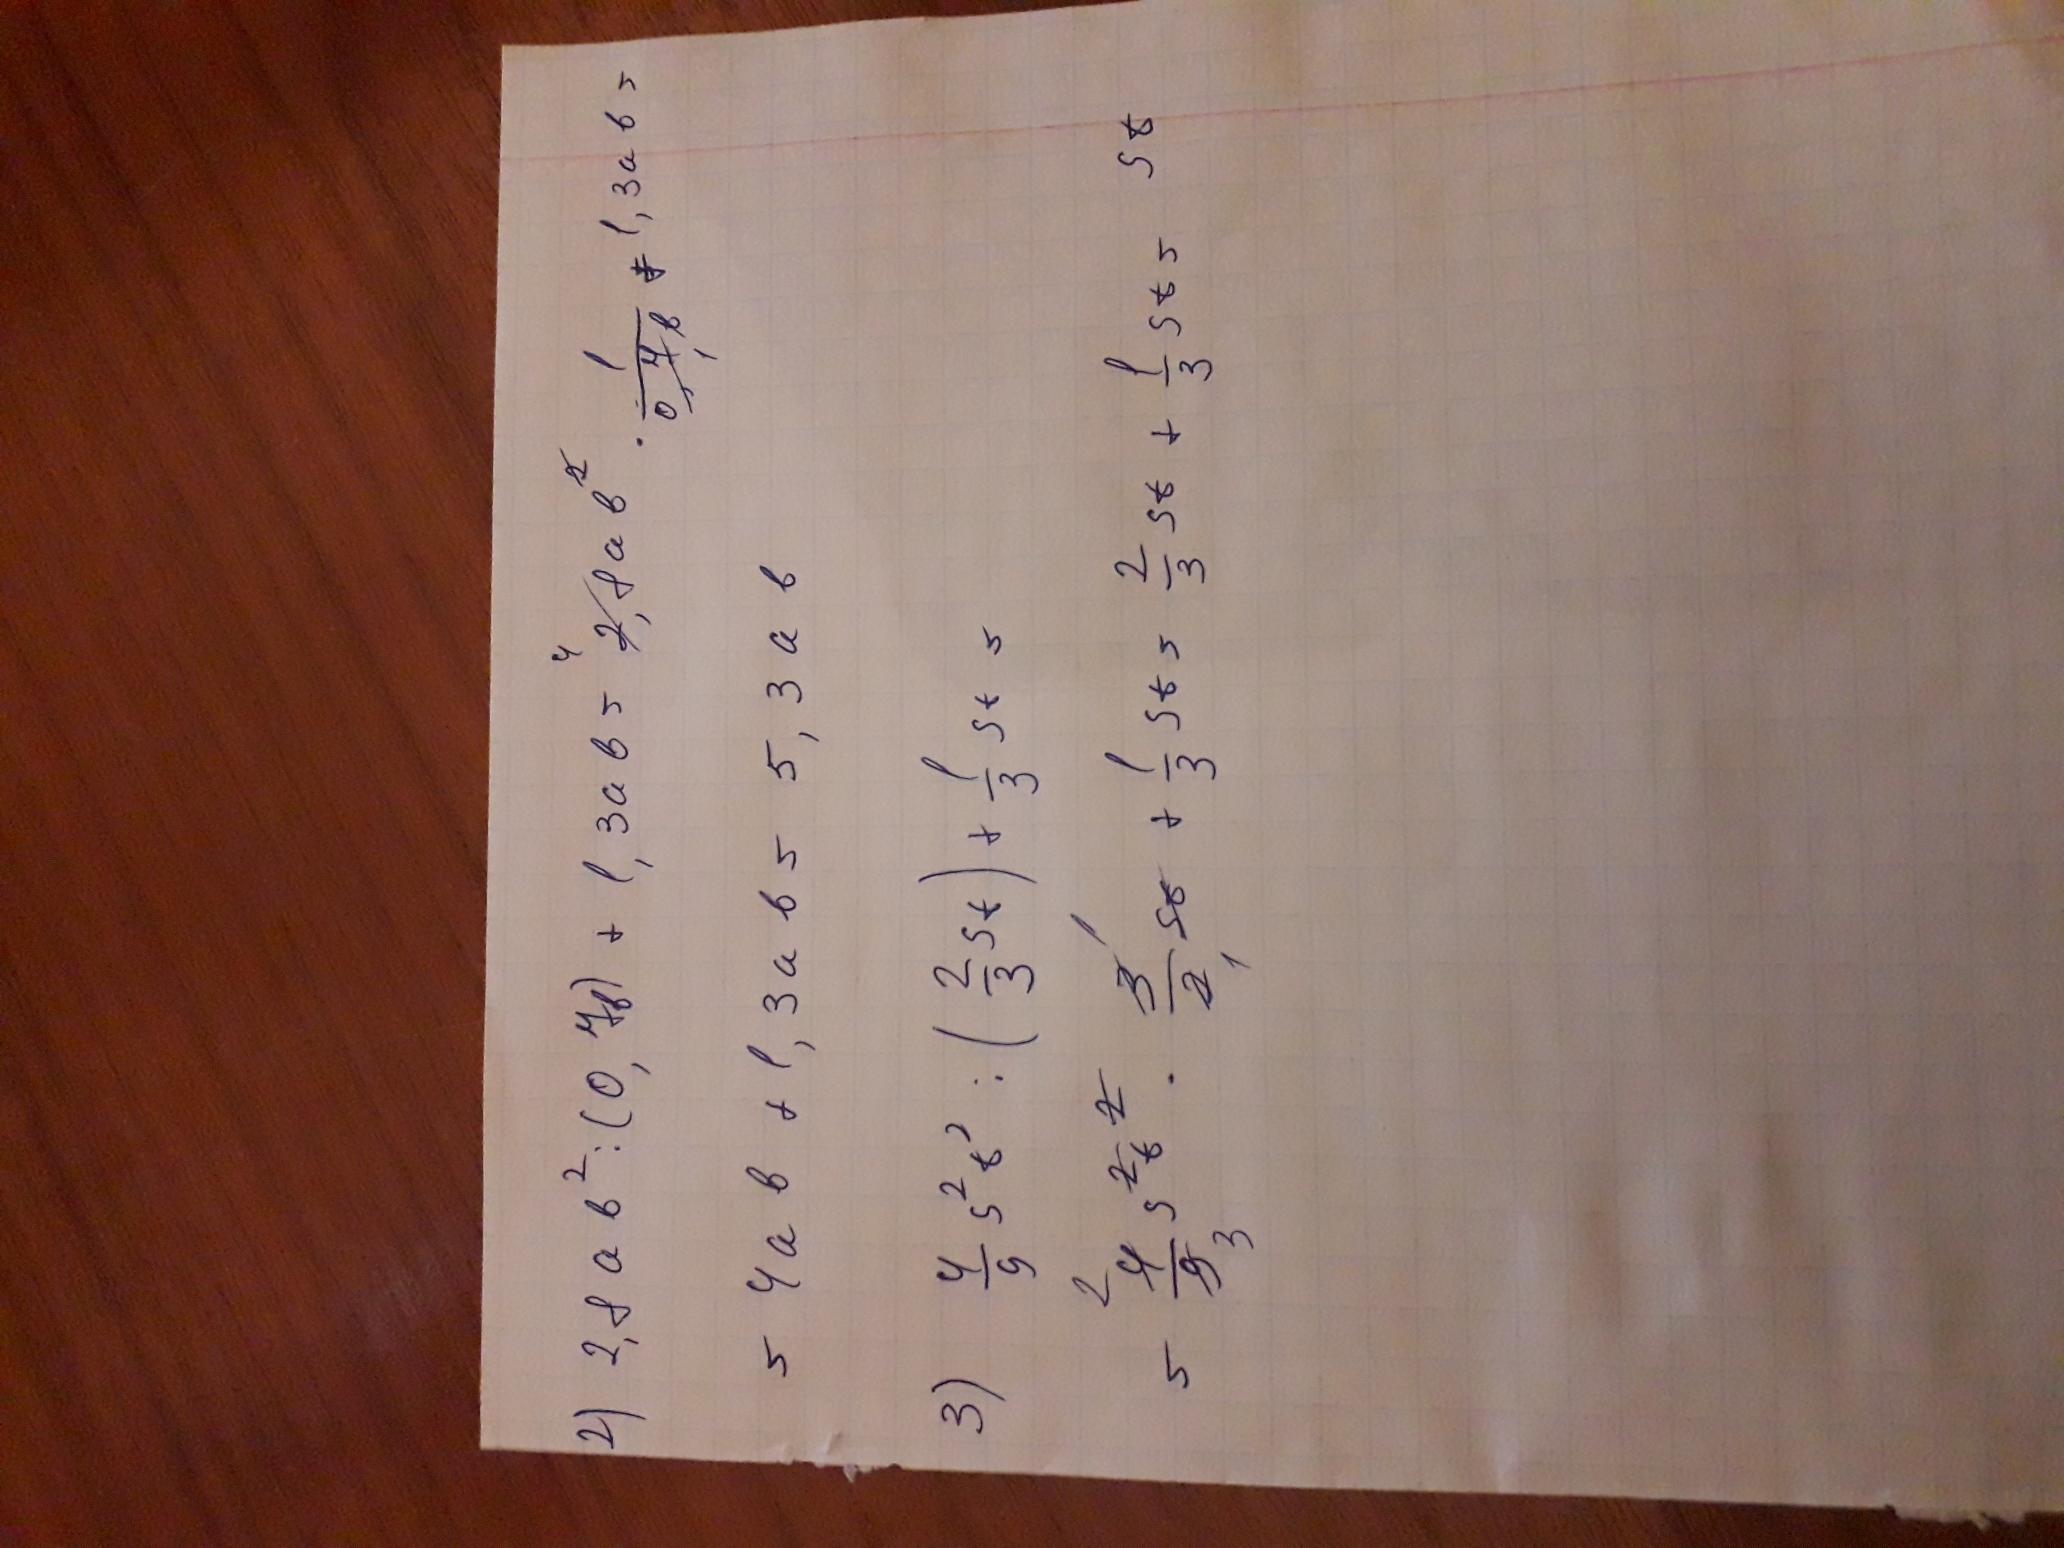 2) 2,8ab²:(0,7b)+1,3ab= ⁴2,8ab² · 1/0,7b + 1,3ab=
= 4ab+1,3ab=5,3ab
3) 4/9 s²t² : (2/3 st) + 1/3 st =
= 4/9 s²t² · 3/2 st + 1/3 st = 2/3 st + 1/3 st = st